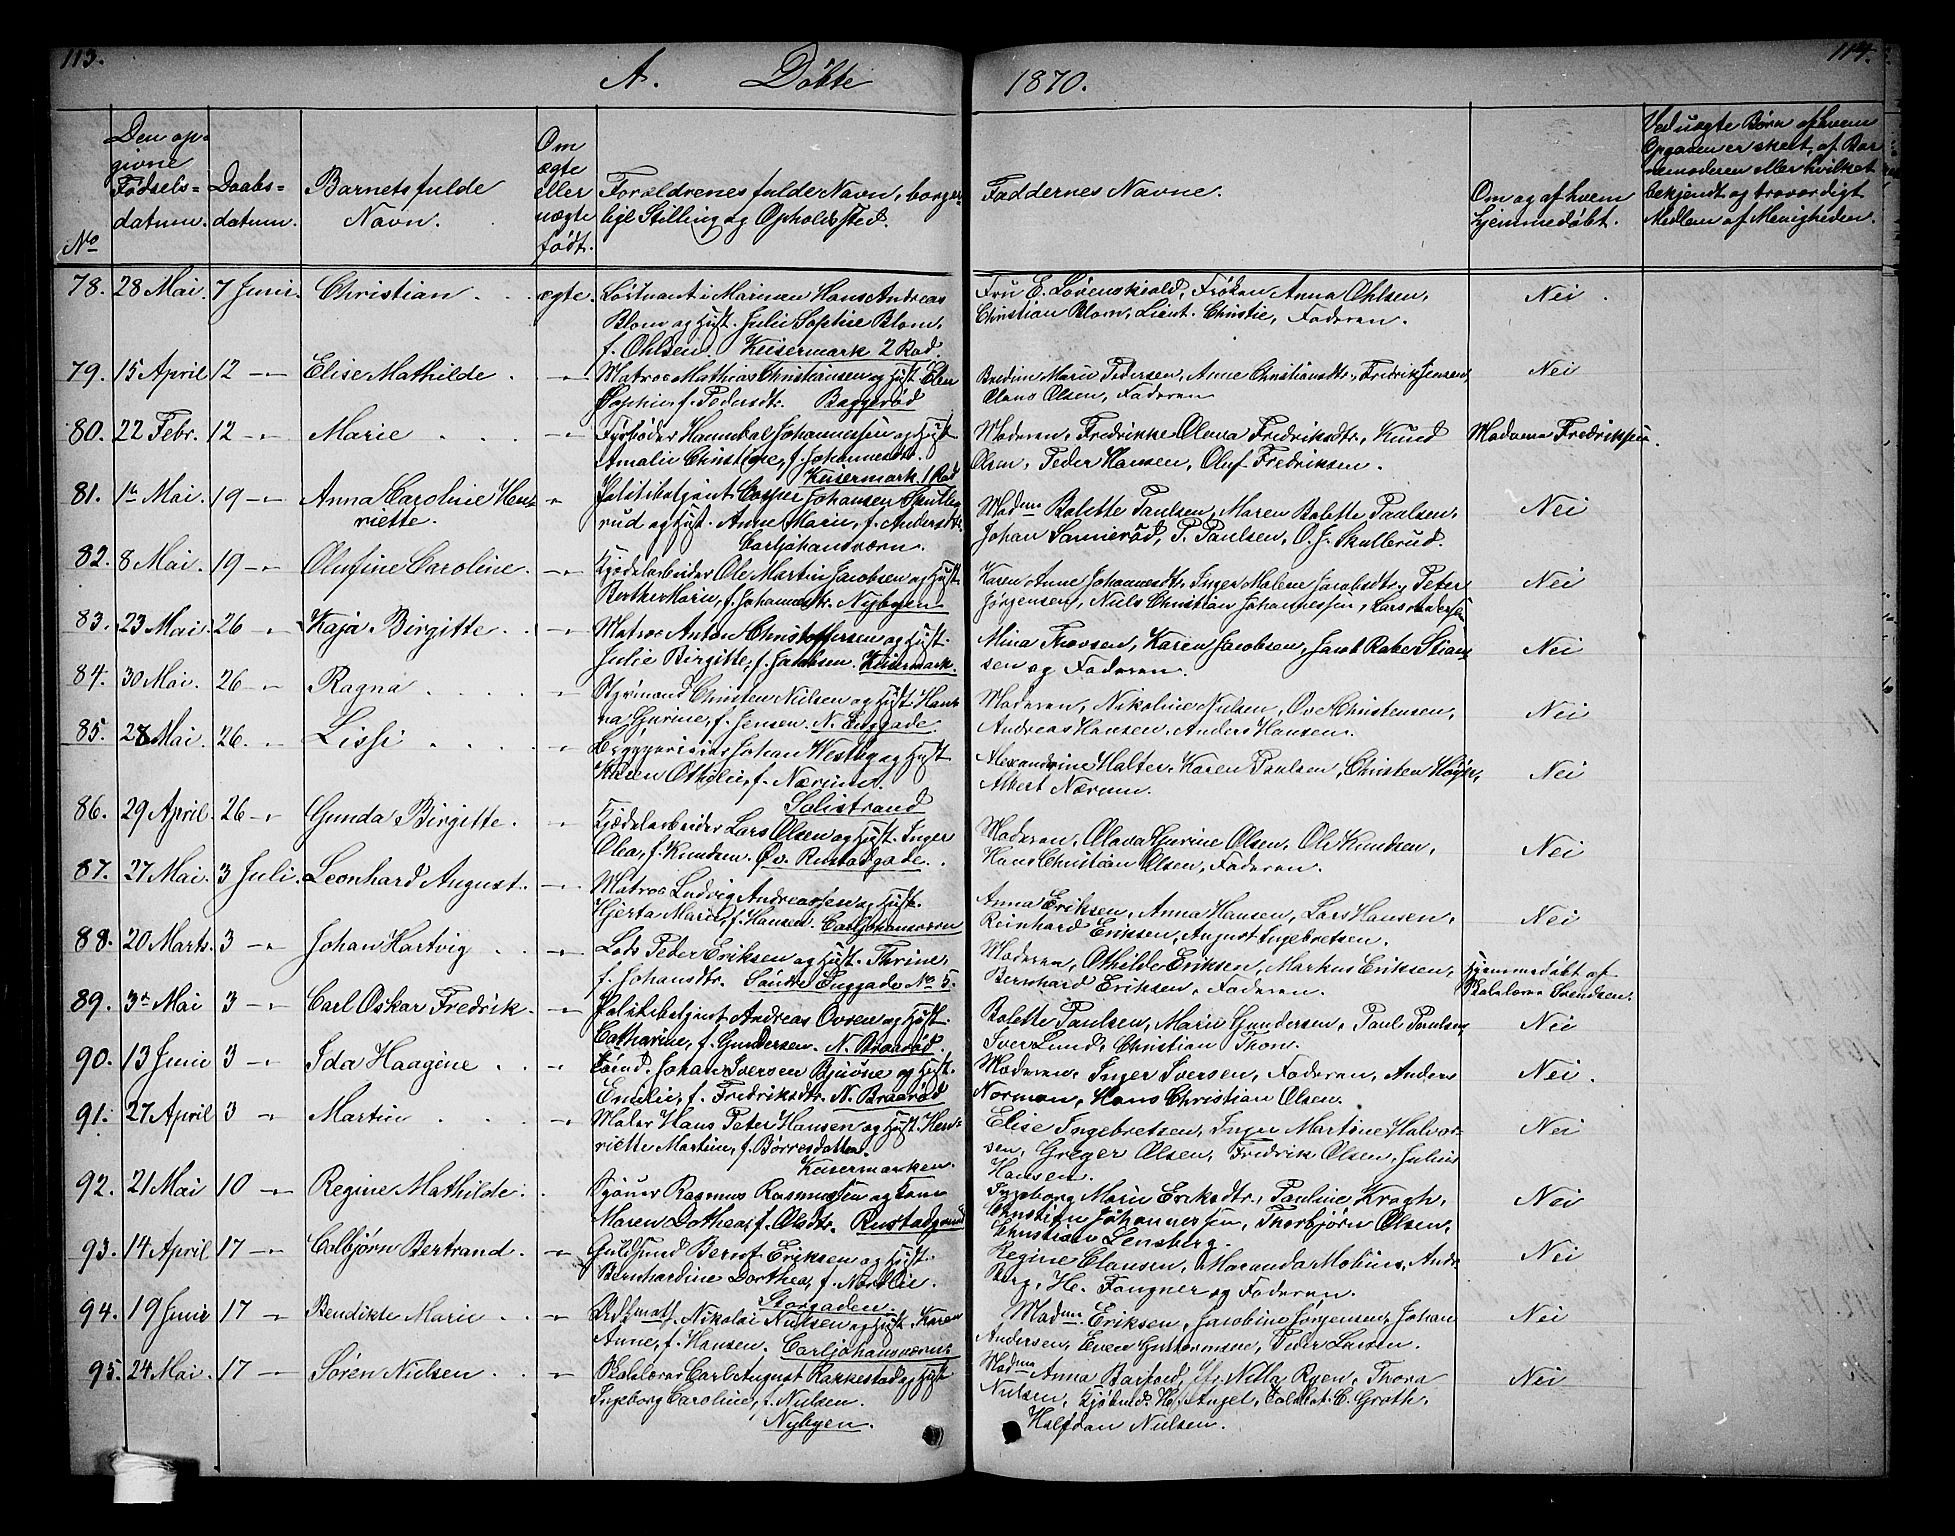 113.
A. Døbte
1870.
114.
No
Den op-
givne
Fødsels-
datum.
Daabs-
datum.
Barnets fulde
Navn.
Om
ægte
eller
uægte
født.
Forældrenes fulde Navn, borger-
lige Stilling og Opholdsted.
Faddernes Navne.
Om og af hvem
hjemmedøbt.
Ved uægte Børn af hvem
Opgaven er skeet, af Bar-
nemoderen eller hvilket
bekjendt og troværdigt
Medlem af Menigheden.
78. 28 Mai. 7 Juni. Christian . . ægte. Løitnant i Marinen Hans Andreas
Blom og Hust. Julie Sophie Blom,
f. Ohlsen. Keisermark 2 Rad.
Fru E. Løvenskiold, Frøken Anna Ohlsen,
Christian Blom, Lieut. Christie, Faderen.
Nei .
79. 15 April 12 -"- Elise Mathilde . -"- Matros Mathias Christiansen og Hust. Elen
Sophie, f. Pedersdt. Baggerød
Bredine Marie Pedersen, Anne Christiansdt., Fredrik Jensen,
Claus Olsen, Faderen
Nei
80. 22 Febr. 12 -"- Marie . . . -"- Fyrbøder Hannibal Johannessen og Hust
Amalie Christine, f. Johannesdtr.
Keisermark 1 Rad
Moderen, Fredrikke Olava Fredriksdtr., Knud
Olsen, Peder Hansen, Oluf Fredriksen.
Madame Fredriksen.
81. 1te Mai. 19 -"- Anna Caroline Hen-
riette. " Politibetjent Casper Johansen Skulle-
rud og Hust. Anne Marie, f. Andersdt.
Carljohansværn.
Madme Bolette Paulsen, Maren Bolette Paulsen,
Johan Sannerød, P. Paulsen, O. J. Skullerud.
Nei
82. 8 Mai. 19 -"- Olufine Caroline. -"- Kjedelarbeider Ole Martin Jacobsen og Hust
Berthe Marie, f. Johannesdtr. Nybyen
Karen Anne Johannesdtr. Inger Malene Jacobsdtr., Peter
Jørgensen, Niels Christian Johannessen, Lars Andersen
Nei
83. 23 Mai. 26 -"- Kaja Birgitte . . -"- Matros Anton Christoffersen og Hust.
Julie Birgitte, f. Jacobsen. Keisermark.
Mina Thovsen, Karen Jacobsen, Jacob Rabe Stian-
sen og Faderen.
Nei
84. 30 Mai. 26 -"- Ragna . . . -"- Styrmand Christen Nielsen og Hust. Han-
na Gurine, f. Jensen. N. Enggade.
Moderen, Nikoline Nielsen, Ove Christensen,
Andreas Hansen, Anders Hansen.
Nei
85. 28 Mai. 26. -"- Lissi . . . -"- Johan Westby og Hust
Karen Othilie, f. Nærum.
Solistrand
Alexandrine Halter, Karen Paulsen, Christen Høyer,
Albert Nærum.
Nei
86. 29 April. 26 -"- Gunda Birgitte. -"- Kjedelarbeider Lars Olsen og Hust. Inger
Olea, f. Knudsen. Øv. Rustadgade.
Moderen, Olava Gurine Olsen, Ole Knudsen,
Hans Christian Olsen, Faderen.
Nei
87. 27 Mai. 3 Juli. Leonhard August. -"- Matros Ludvig Andreassen og Hust.
Hjerta Marie, f. Hansen. Carljohansværn
Anna Eriksen, Anna Hansen, Lars Hansen,
Reinhard Eriksen, August Ingebretsen.
Nei
88. 20 Marts. 3 -"- Johan Hartvig . . -"- Lods Peder Eriksen og Hust. Thrine,
f. Johansdtr. Søndre Enggade No 5.
Moderen, Othilde Eriksen, Markus Eriksen,
Bernhard Eriksen, Faderen.
Hjemmedøbt af
Skolelærer Svendsen.
89. 3die Mai 3 -"- Carl Oskar Fredrik. -"- Politibetjent Andreas Ovren og Hust.
Catharine, f. Gundersen. N. Braarød.
Bolette Paulsen, Marie Gundersen, Paul Paulsen,
Iver Lund, Christian Thon.
Nei
90. 13 Juni 3 -"- Ida Haagine . . -"- Tømd. Johan Iversen Bjuvne og Hust.
Emelie, f. Fredriksdtr. N. Braarød
Moderen, Inger Iversen, Faderen, Anders
Norman, Hans Christian Olsen.
Nei .
91. 27 April 3 -"- Martin . . . -"- Maler Hans Peter Hansen og Hust. Hen-
riette Martine, f. Børresdatter.
Keisermarken.
Elise Ingebretsen, Inger Martine Halvor-
sen, Greger Olsen, Fredrik Olsen, Julius
Hansen.
Nei
92. 21 Mai 10 -"- Regine Mathilde. . Skjøuer Rasmus Rasmussen og Kone
Maren Dorthea, f. Olsdtr. Rustadgrund
Ingeborg Marie Eriksdtr., Pauline Kragh,
Christian Johannessen, Thorbjørn Olsen,
Christian Lensberg.
Nei
93. 14 April 17 -"- Colbjørn Bertrand. -"- Guldsmed Bernt Eriksen og Hust.
Bernhardine Dorthea, f. Nordlie.
Storgaden.
Regine Clausen, Maranda Mobius, Andr.
Berg, H. Fangner og Faderen.
Nei
94. 19 Juni 17 -"- Bendikte Marie . . -"- Nikolai Nielsen og Hust. Karen
Anne, f. Hansen. Carljohansværn.
Madme Eriksen, Jacobine Jørgensen, Johan
Andersen, Even Guttormsen, Peder Larsen.
Nei
95. 24 Mai. 17 -"- Søren Nielsen . . -"- Skolelærer Carl August Rakkestad og Hust
Ingeborg Caroline, f. Nielsen.
Nybyen.
Madme Anna Barfod, Fr. Nilla Ryen, Thora
Nielsen, Kjøbmd. H. Angel, Toldbet. C. Groth,
Halfdan Nielsen.
Nei